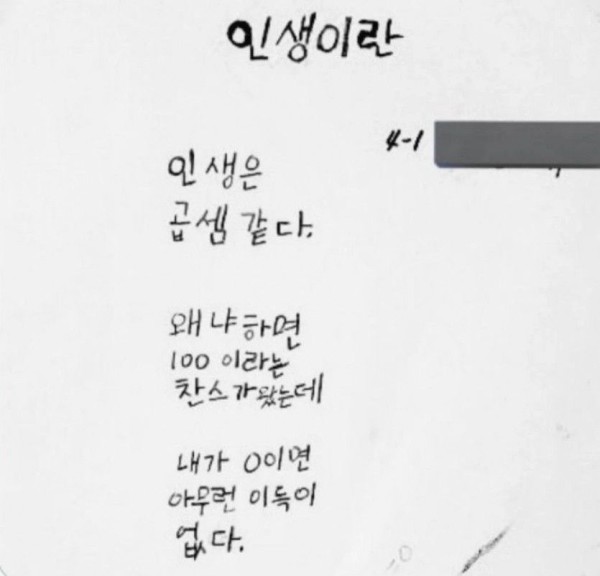 인생이란
4-1
인생은
곱셈 같다.
왜냐하면
100 이라는
찬스가 왔는데
내가 0이면
아무런 이득이
없다.